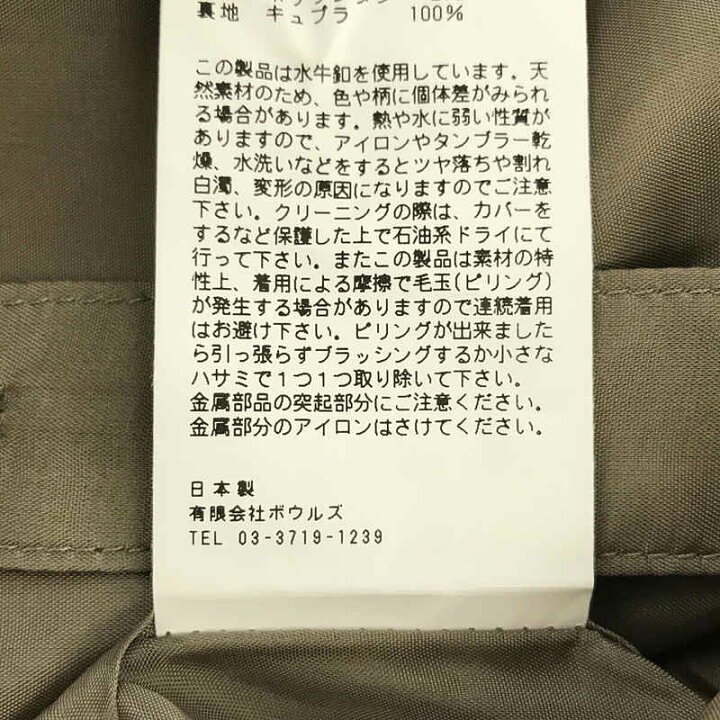 裏地 キュプラ 100%
この製品は水牛釦を使用しています。天
然素材のため、色や柄に個体差がみられ
る場合があります。熱や水に弱い性質が
ありますので、アイロンやタンブラー乾
燥、水洗いなどをするとツヤ落ちや割れ
白濁、変形の原因になりますのでご注意
下さい。クリーニングの際は、カバーを
するなど保護した上で石油系ドライにて
行って下さい。またこの製品は素材の特
性上、着用による摩擦で毛玉(ピリング)
が発生する場合がありますので連続着用
はお避け下さい。ピリングが出来ました
ら引っ張らずブラッシングするか小さな
ハサミで1つ1つ取り除いて下さい。
金属部品の突起部分にご注意ください。
金属部分のアイロンはさけてください。
日本製
有限会社ボウルズ
TEL 03-3719-1239